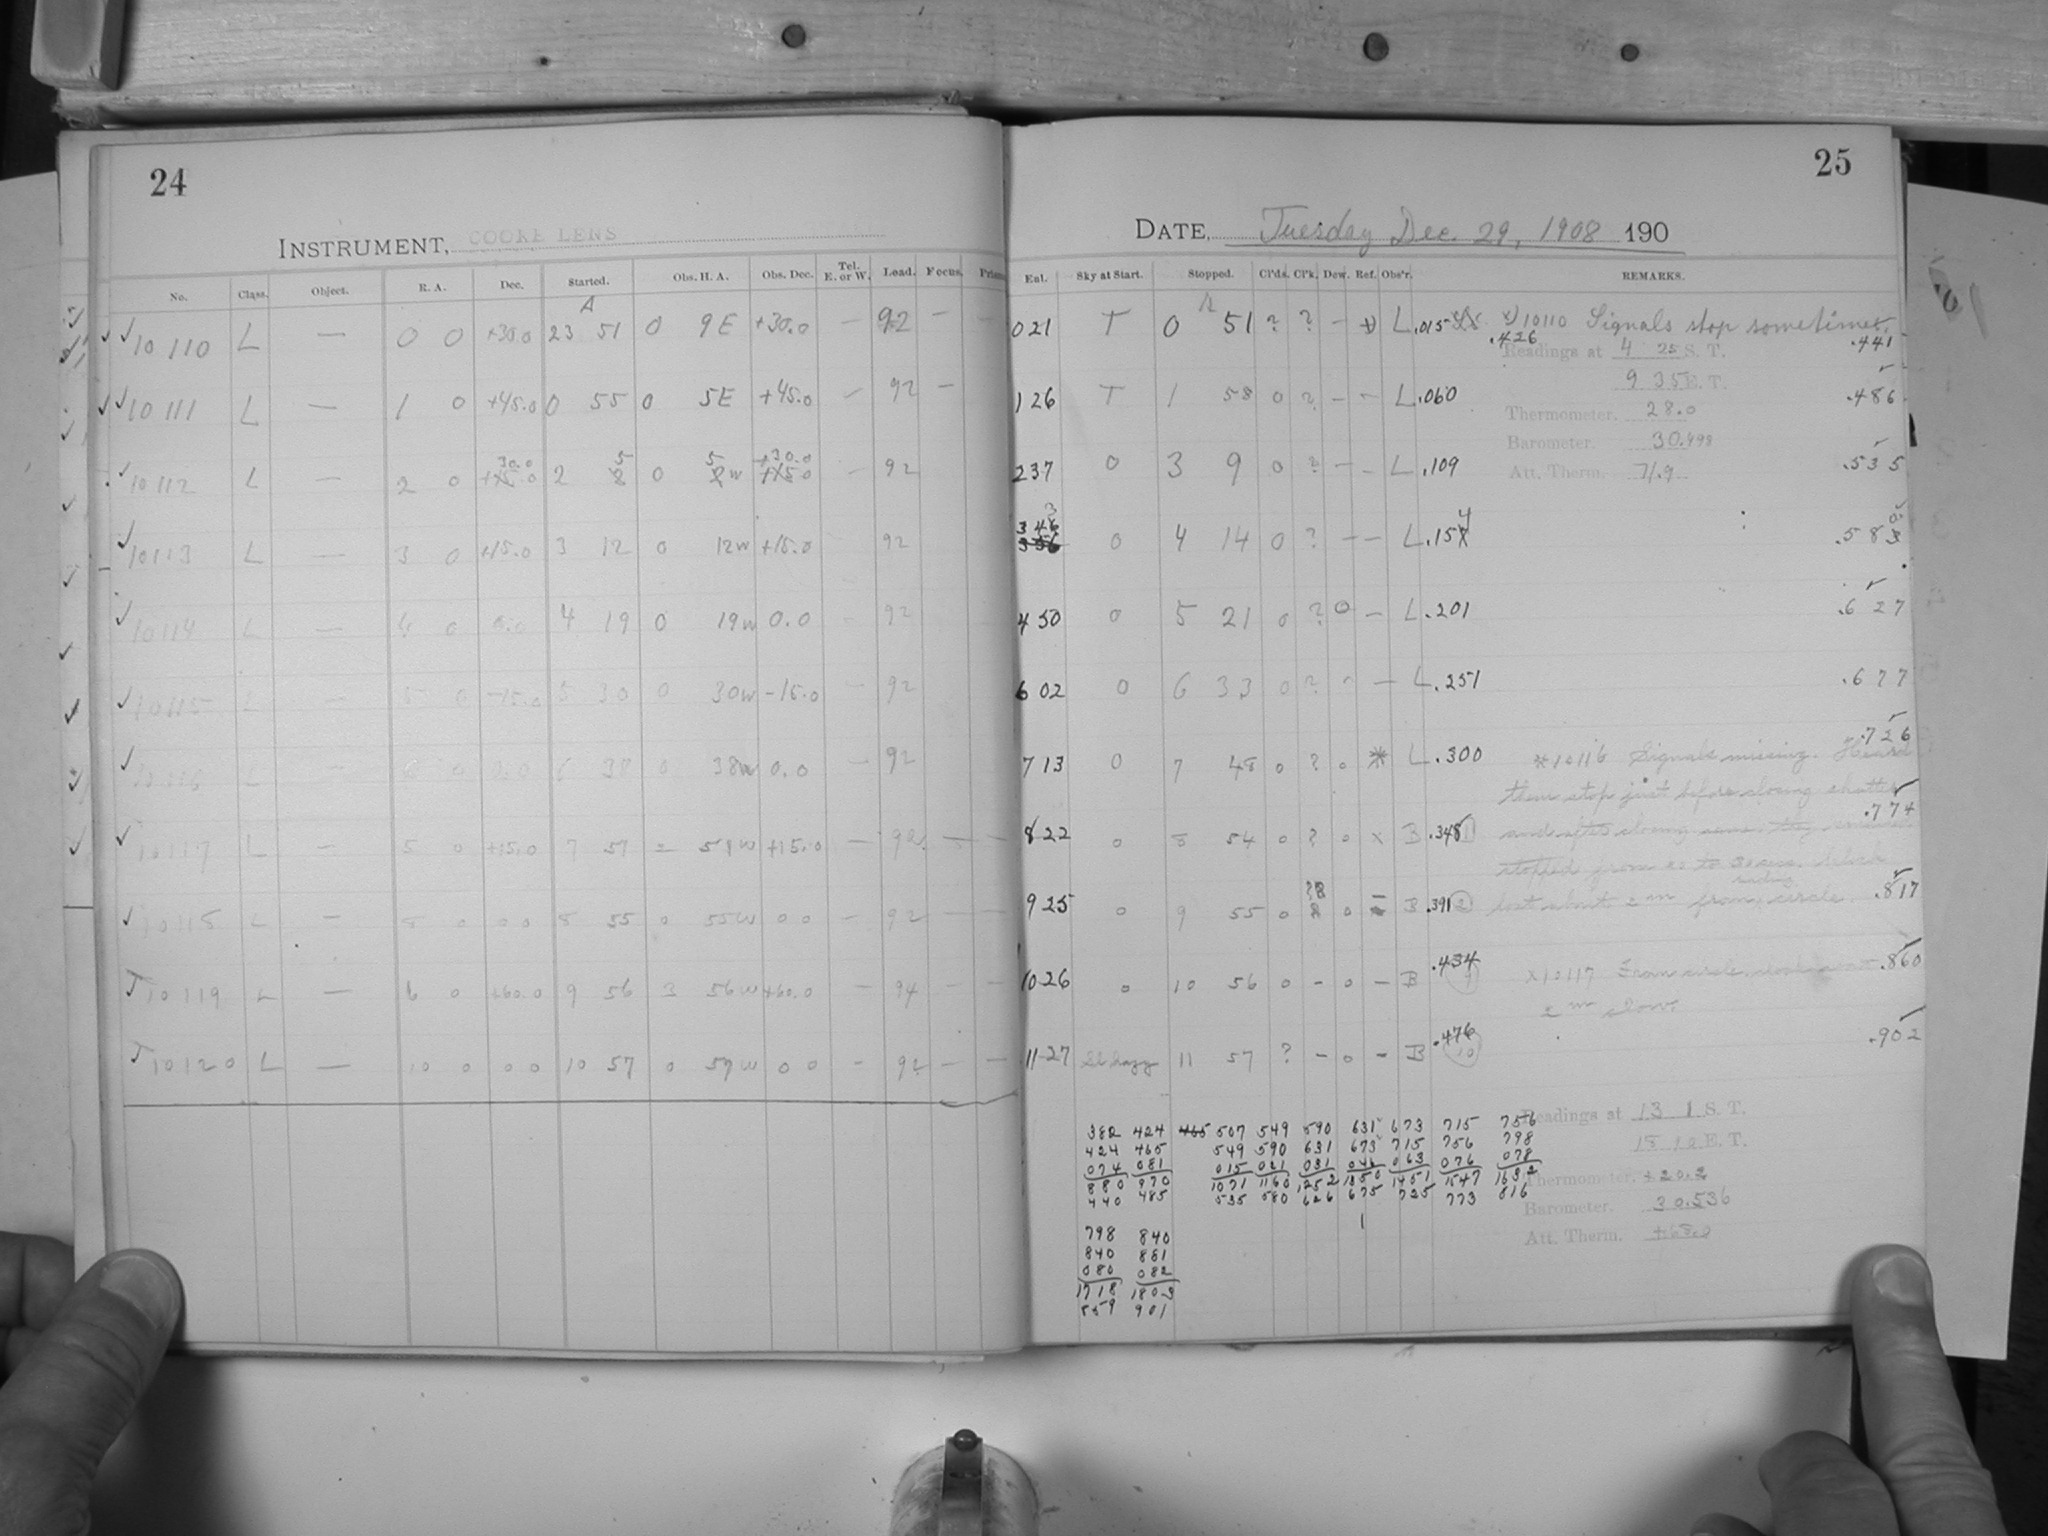 24
INSTRUMENT, COOKE LENS
No. Class. Object. R. A. Dec. Started. Obs. H. A. Obs. Dec. Tel. E. or W. Load. Focus. Prism
10110 L — 0 0 +30.0 23 51 0 9E +30.0 — 92 — —
10111 L — 1 0 +45.0 0 55 0 5E +45.0 — 92 —
10112 L — 2 0 30.0 2 5 0 5w +30.0 — 92
10113 L — 3 0 +15.0 3 12 0 12w +15.0 — 92
10114 L — 4 0 0.0 4 19 0 19w 0.0 - 92
10115 L — 5 0 -15.0 5 30 0 30w -15.0 — 92
10116 L — 6 0 0.0 6 38 0 38w 0.0 — 92
10117 L — 5 0 +15.0 7 51 2 51w +15.0 — 92 — —
10118 L — 8 0 0 0 8 55 0 55w 0 0 — 92 — —
10119 L — 6 0 +60.0 9 56 3 56w +60.0 — 94 — —
10120 L — 10 0 0 0 10 57 0 57w 0 0 — 92 — —
25
DATE, Tuesday Dec. 29, 1908 190
Eul. Sky at Start. Stopped. Cl'ds. Cl'k. Dew. Ref. Obs'r. REMARKS.
021 T 0 51 ? ? — L .015 10110 Signals stop sometimes.
.426 .441
Readings at 4 25 S. T.
9 35 E. T.
126 T 1 58 0 ? — — L .060 .486
Thermometer. 28.0
Barometer. 30.498
237 0 3 9 0 ? — — L .109 .535
Att. Therm. 71.9
0 4 14 0 ? — — L .154 .583
450 0 5 21 0 ? 0 — L .201 .627
602 0 6 33 0 ? — L .251 .677
.726
713 0 7 48 0 ? 0 * L .300 *10116 Signals missing. Heard
them stop just before closing shutter
.774
822 0 8 54 0 ? 0 x B .348 and after closing
stopped from 20 to
reading
925 0 9 55 0 0 B .391 2 lost about 2m from circle. .817
1026 0 10 56 0 - 0 — B .434 x10117 From circle, clock .860
2m slow.
1127 Sl hazy 11 57 ? - 0 - B .476 10 .902
Readings at 13 1 S. T.
18 10 E. T.
Thermometer. +20.2
Barometer. 30.536
Att. Therm.
382 424 465 507 549 590 631 673 715 756
424 465 549 590 631 673 715 756 798
074 081 015 021 031 046 063 076 078
880 970 1071 1160 1252 1350 1451 1547 1632
440 485 535 580 626 675 725 773 816
798 840
840 881
080 082
1718 1803
859 901